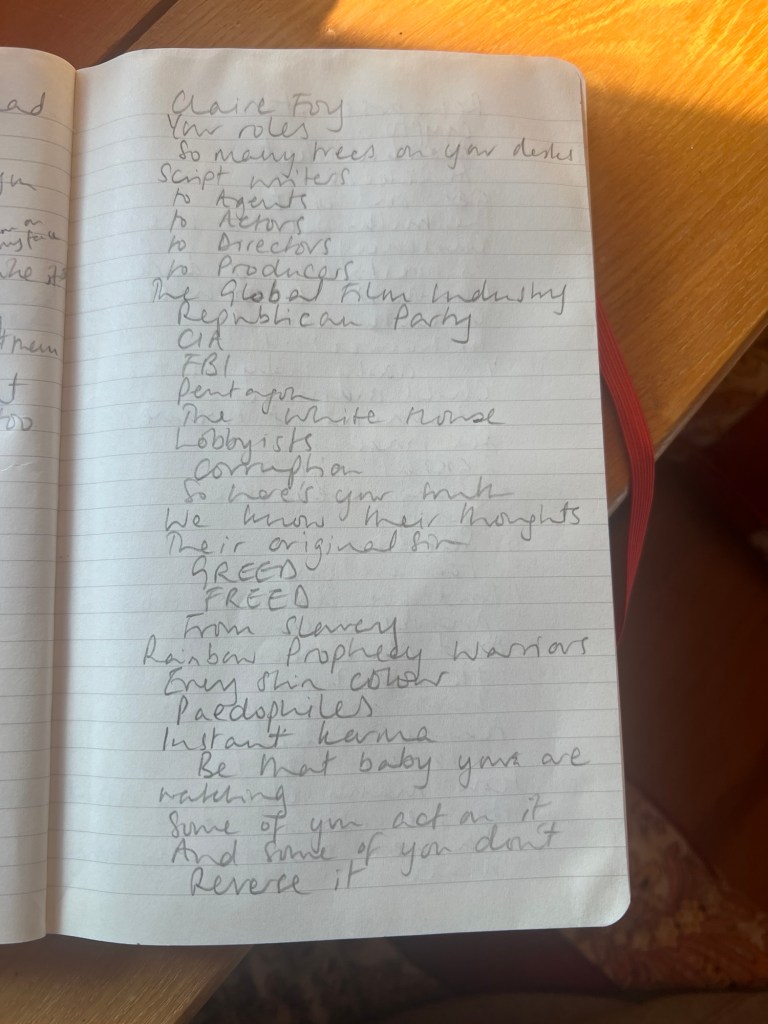 ad
Claire Foy
Your roles
So many trees on your desks
Script writers
to Agents
to Actors
to Directors
to Producers
The Global Film Industry
Republican Party
CIA
FBI
Pentagon
The White House
Lobbyists
Corruption
So here's your truth
We know their thoughts
Their original sin
GREED
FREED
From slavery
Rainbow Prophecy Warriors
Every skin colour
Paedophiles
Instant karma
Be that baby you are
watching
Some of you act on it
And some of you don't
Reverse it